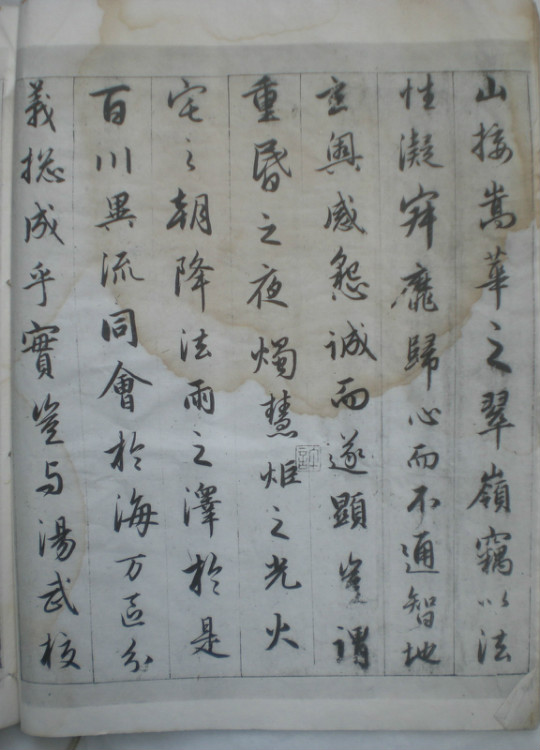 山接嵩華之翠嶺竊以法
性凝寂靡歸心而不通智地
玄奧感懇誠而遂顯豈謂
重昏之夜燭慧炬之光火
宅之朝降法雨之澤於是
百川異流同會於海万區分
義揔成乎實豈与湯武校